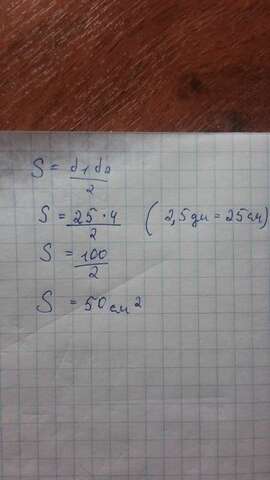 S = d₁d₂/2
S = 25·4/2 (2,5дм = 25см)
S = 100/2
S = 50см²